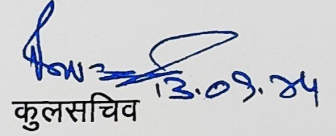 13.09.24
कुलसचिव